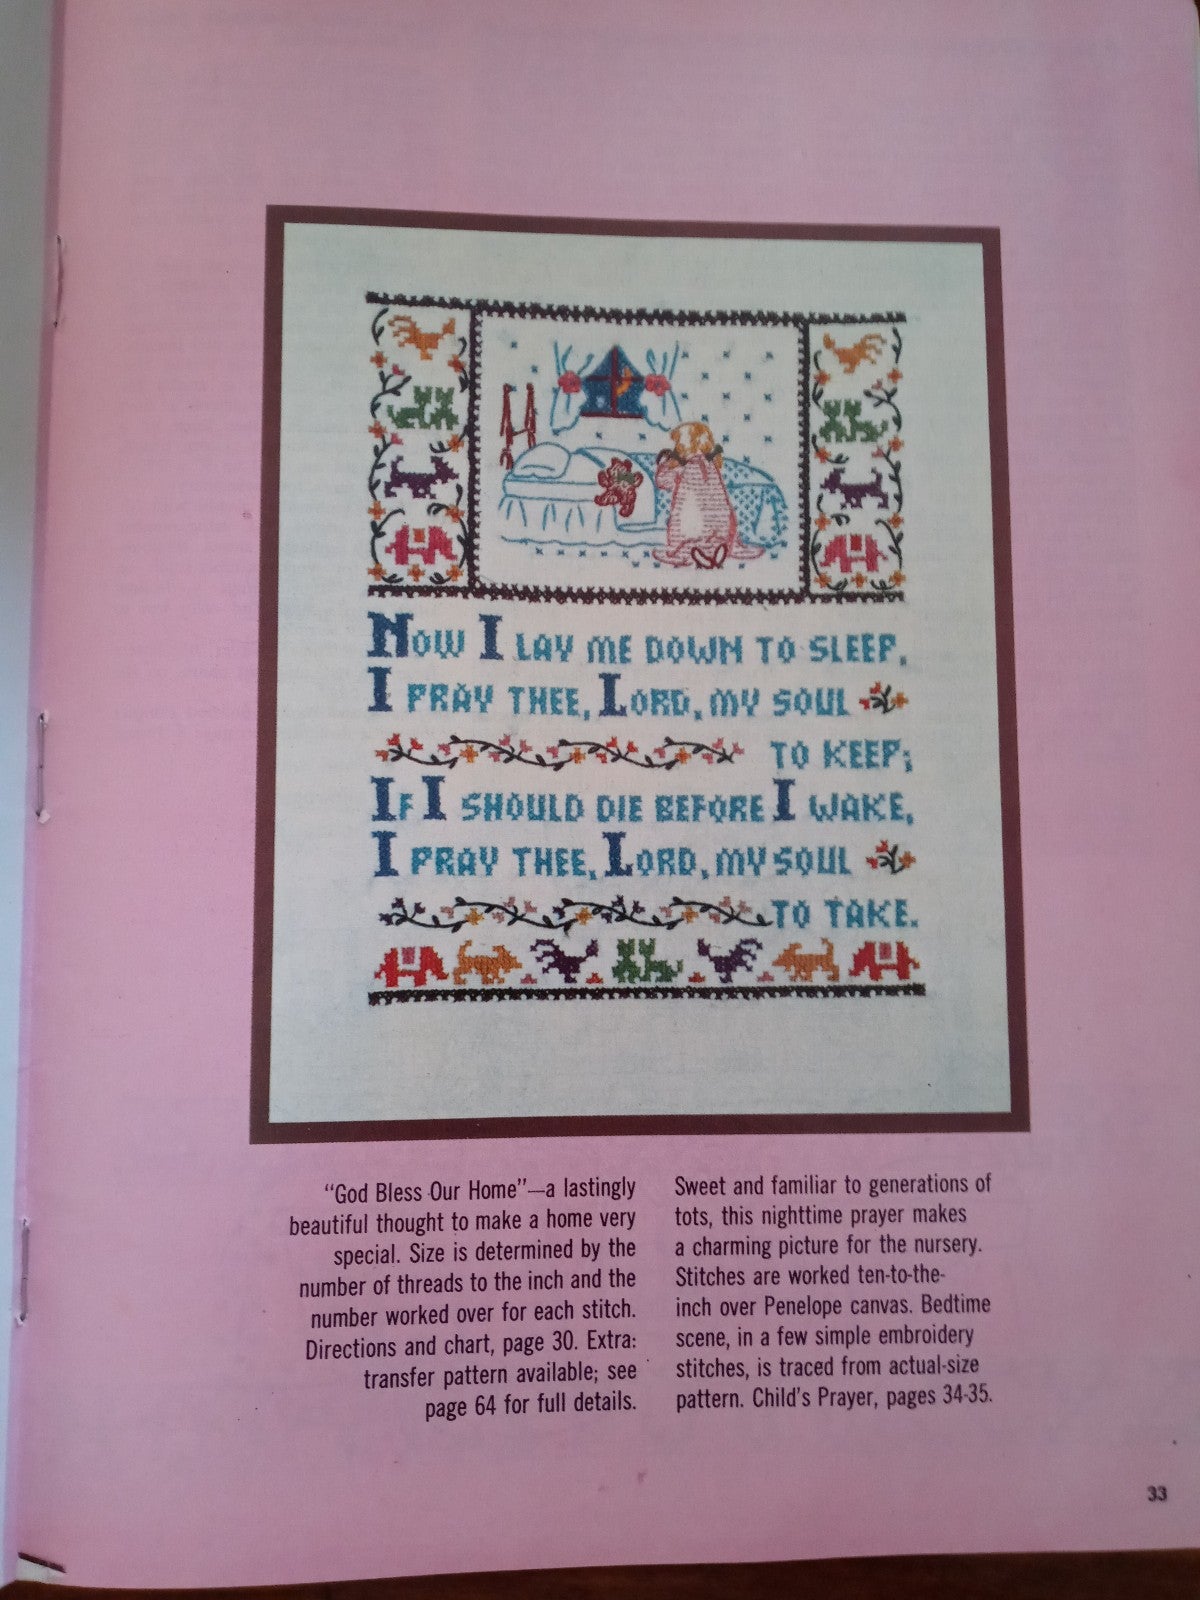 Now I lay me down to sleep,
I pray thee, Lord, my soul
to keep;
If I should die before I wake,
I pray thee, Lord, my soul
to take.
"God Bless Our Home"—a lastingly
beautiful thought to make a home very
special. Size is determined by the
number of threads to the inch and the
number worked over for each stitch.
Directions and chart, page 30. Extra:
transfer pattern available; see
page 64 for full details.
Sweet and familiar to generations of
tots, this nighttime prayer makes
a charming picture for the nursery.
Stitches are worked ten-to-the-
inch over Penelope canvas. Bedtime
scene, in a few simple embroidery
stitches, is traced from actual-size
pattern. Child's Prayer, pages 34-35.
33